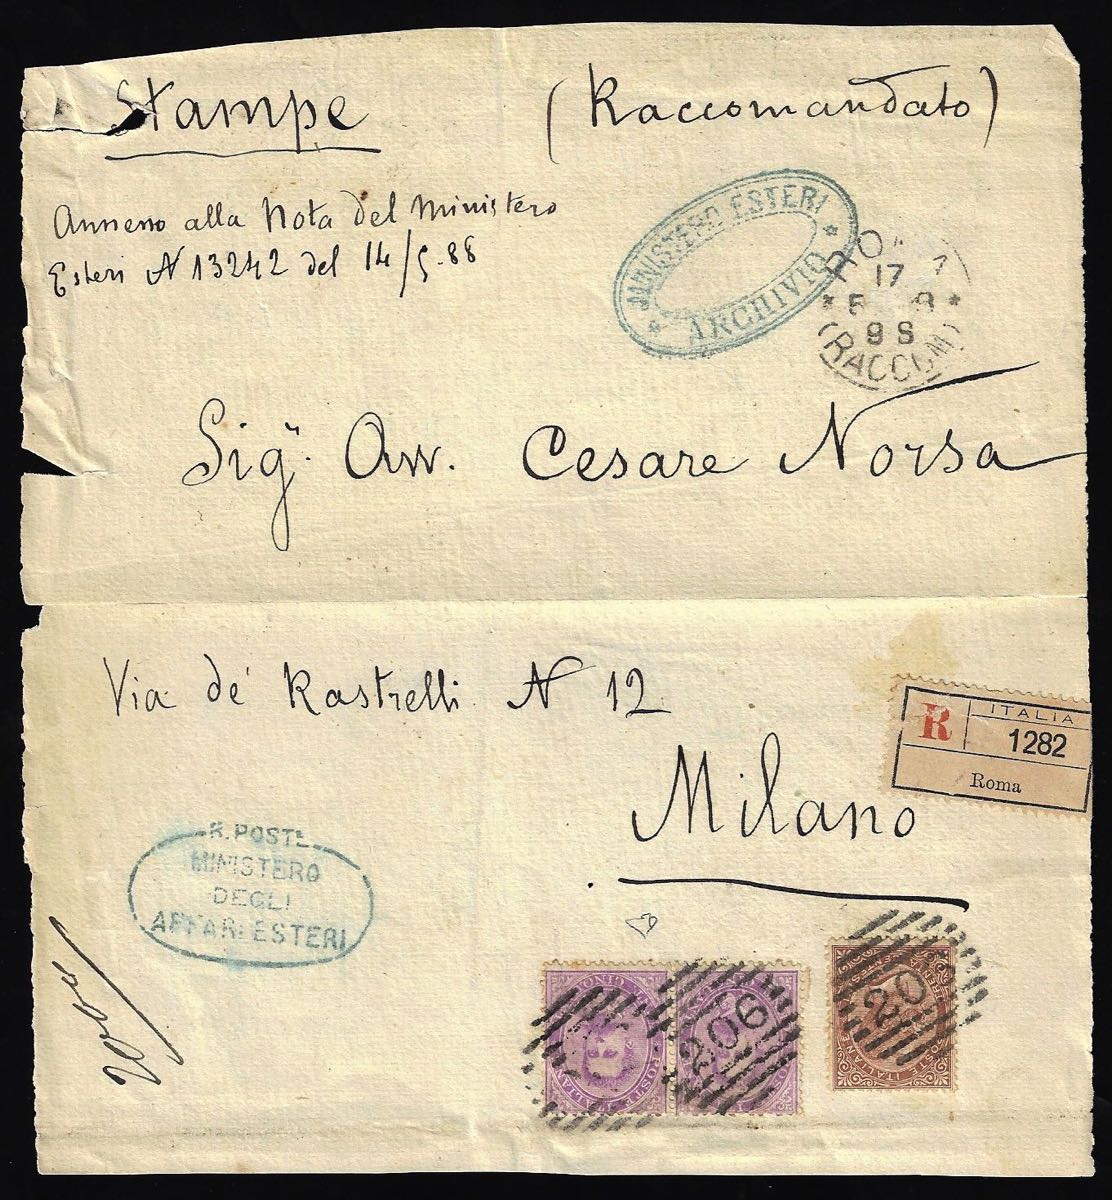 Stampe (Raccomandato)
Annesso alla Nota del Ministero
Esteri N 13242 del 14/5-88
MINISTERO ESTERI
* ARCHIVIO *
17
(RACCOM)
Sigr. Avv. Cesare Norsa
Via de' Rastrelli N 12
R ITALIA
1282
Roma
Milano
R. POSTE
MINISTERO
DEGLI
AFFARI ESTERI
206
20
POSTE ITALIANE